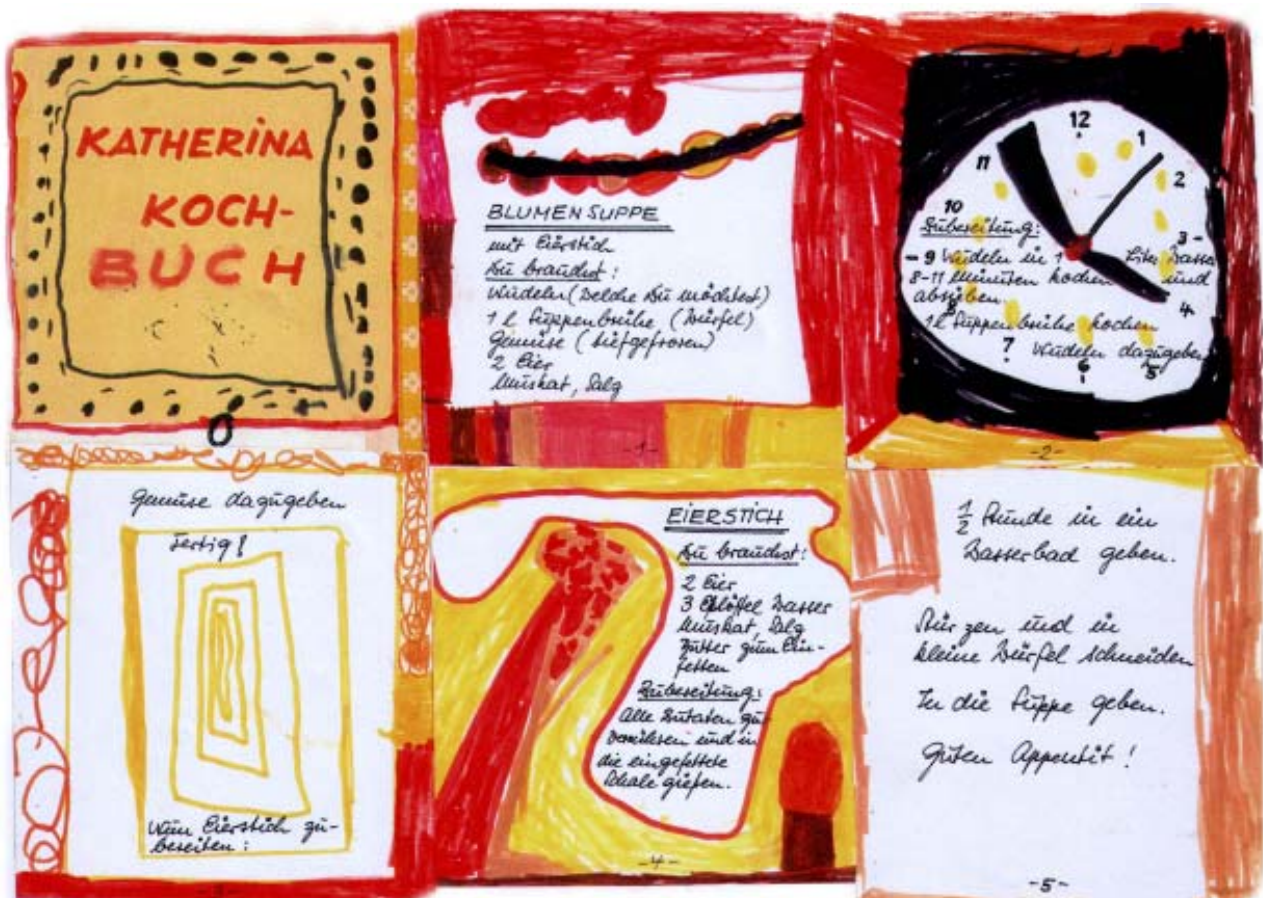 KATHERINA
KOCH-
BUCH
BLUMENSUPPE
mit Eierstich
Du brauchst:
Nudeln (Welche Du möchtest)
1 l Suppenbrühe (Würfel)
Gemüse (tiefgefroren)
2 Eier
Muskat, Salz
-1-
12
1
2
3
4
5
6
7
8
9
10
11
Zubereitung:
Nudeln in 1 Liter Wasser
8-11 Minuten kochen und
absieben.
1l Suppenbrühe kochen
Nudeln dazugeben
-2-
Gemüse dazugeben
Fertig!
Nun Eierstich zu-
bereiten:
EIERSTICH
Du brauchst:
2 Eier
3 Eßlöffel Wasser
Muskat, Salz
Butter zum Ein-
fetten
Zubereitung:
Alle Zutaten gut
die eingefettete
Schale gießen.
-4-
1/2 Stunde in ein
Wasserbad geben.
Stürzen und in
kleine Würfel schneiden
In die Suppe geben.
Guten Appentit!
-5-